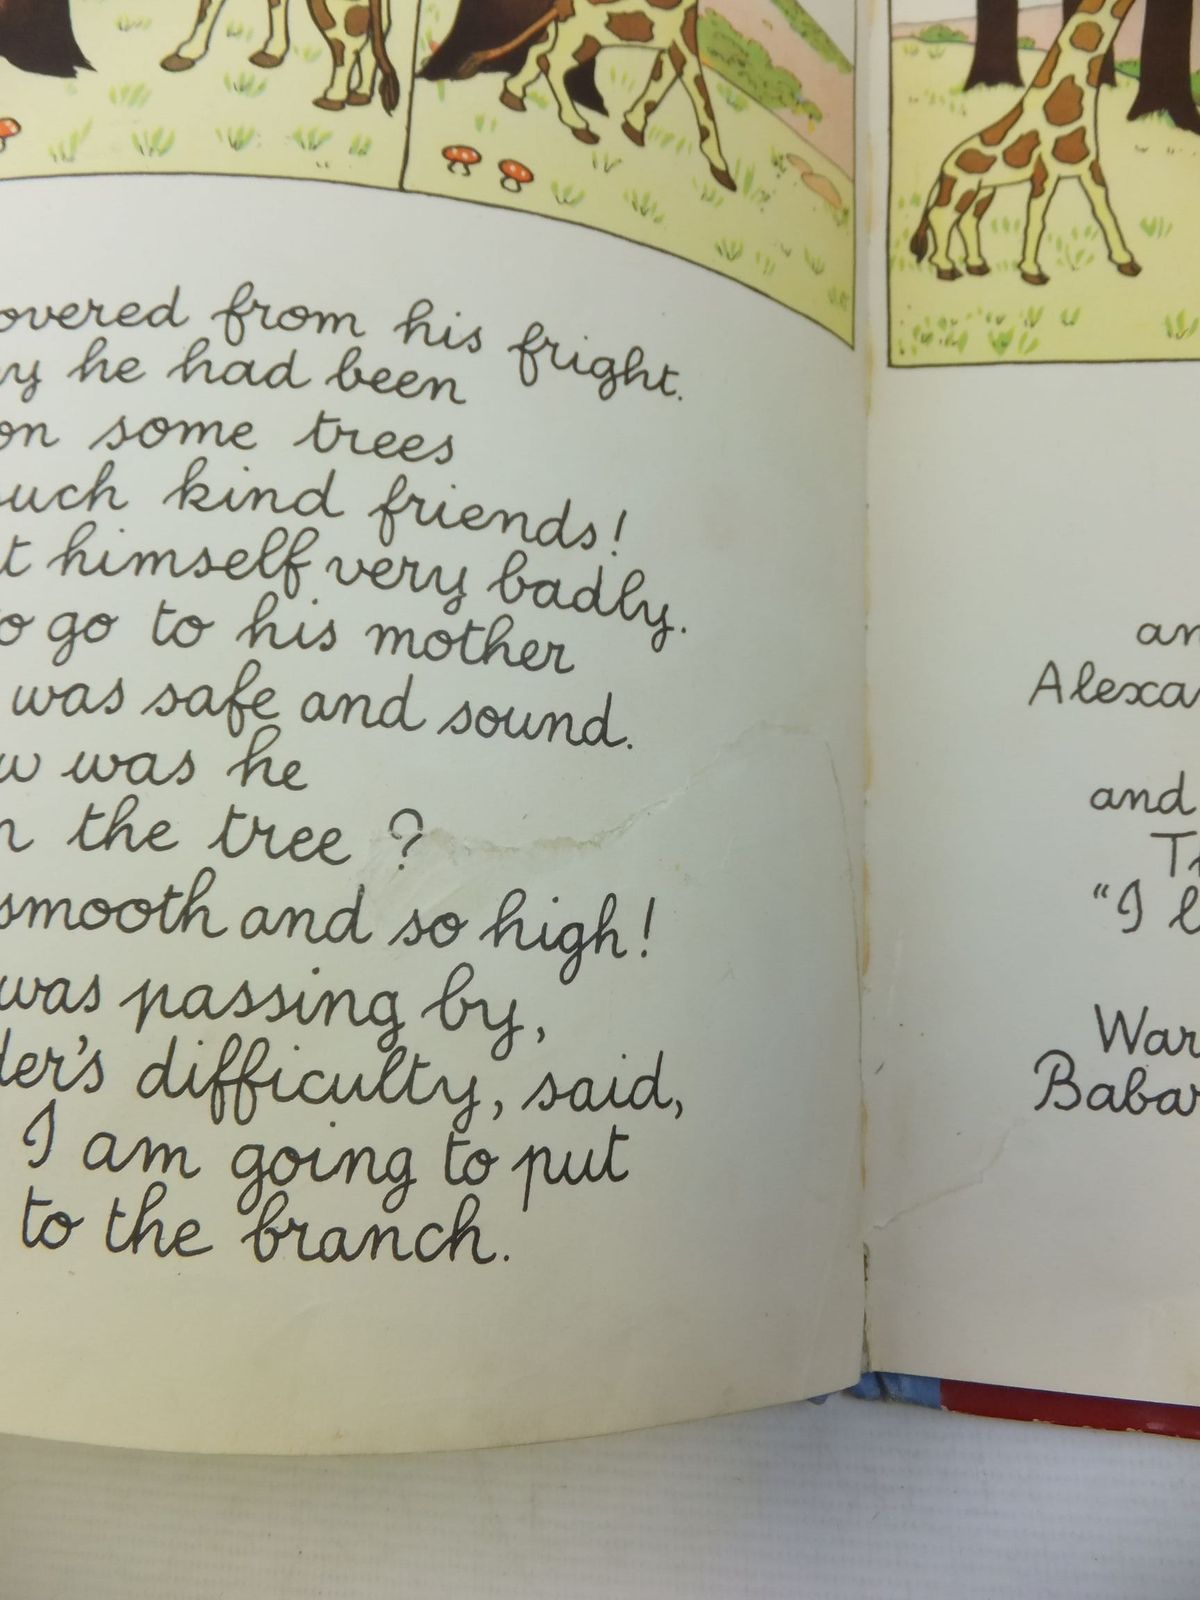 from his fright.
he had been
on some trees
such kind friends!
himself very badly.
go to his mother
was safe and sound.
was he
the tree ?
smooth and so high!
was passing by,
difficulty, said,
I am going to put
to the branch.
and
"I